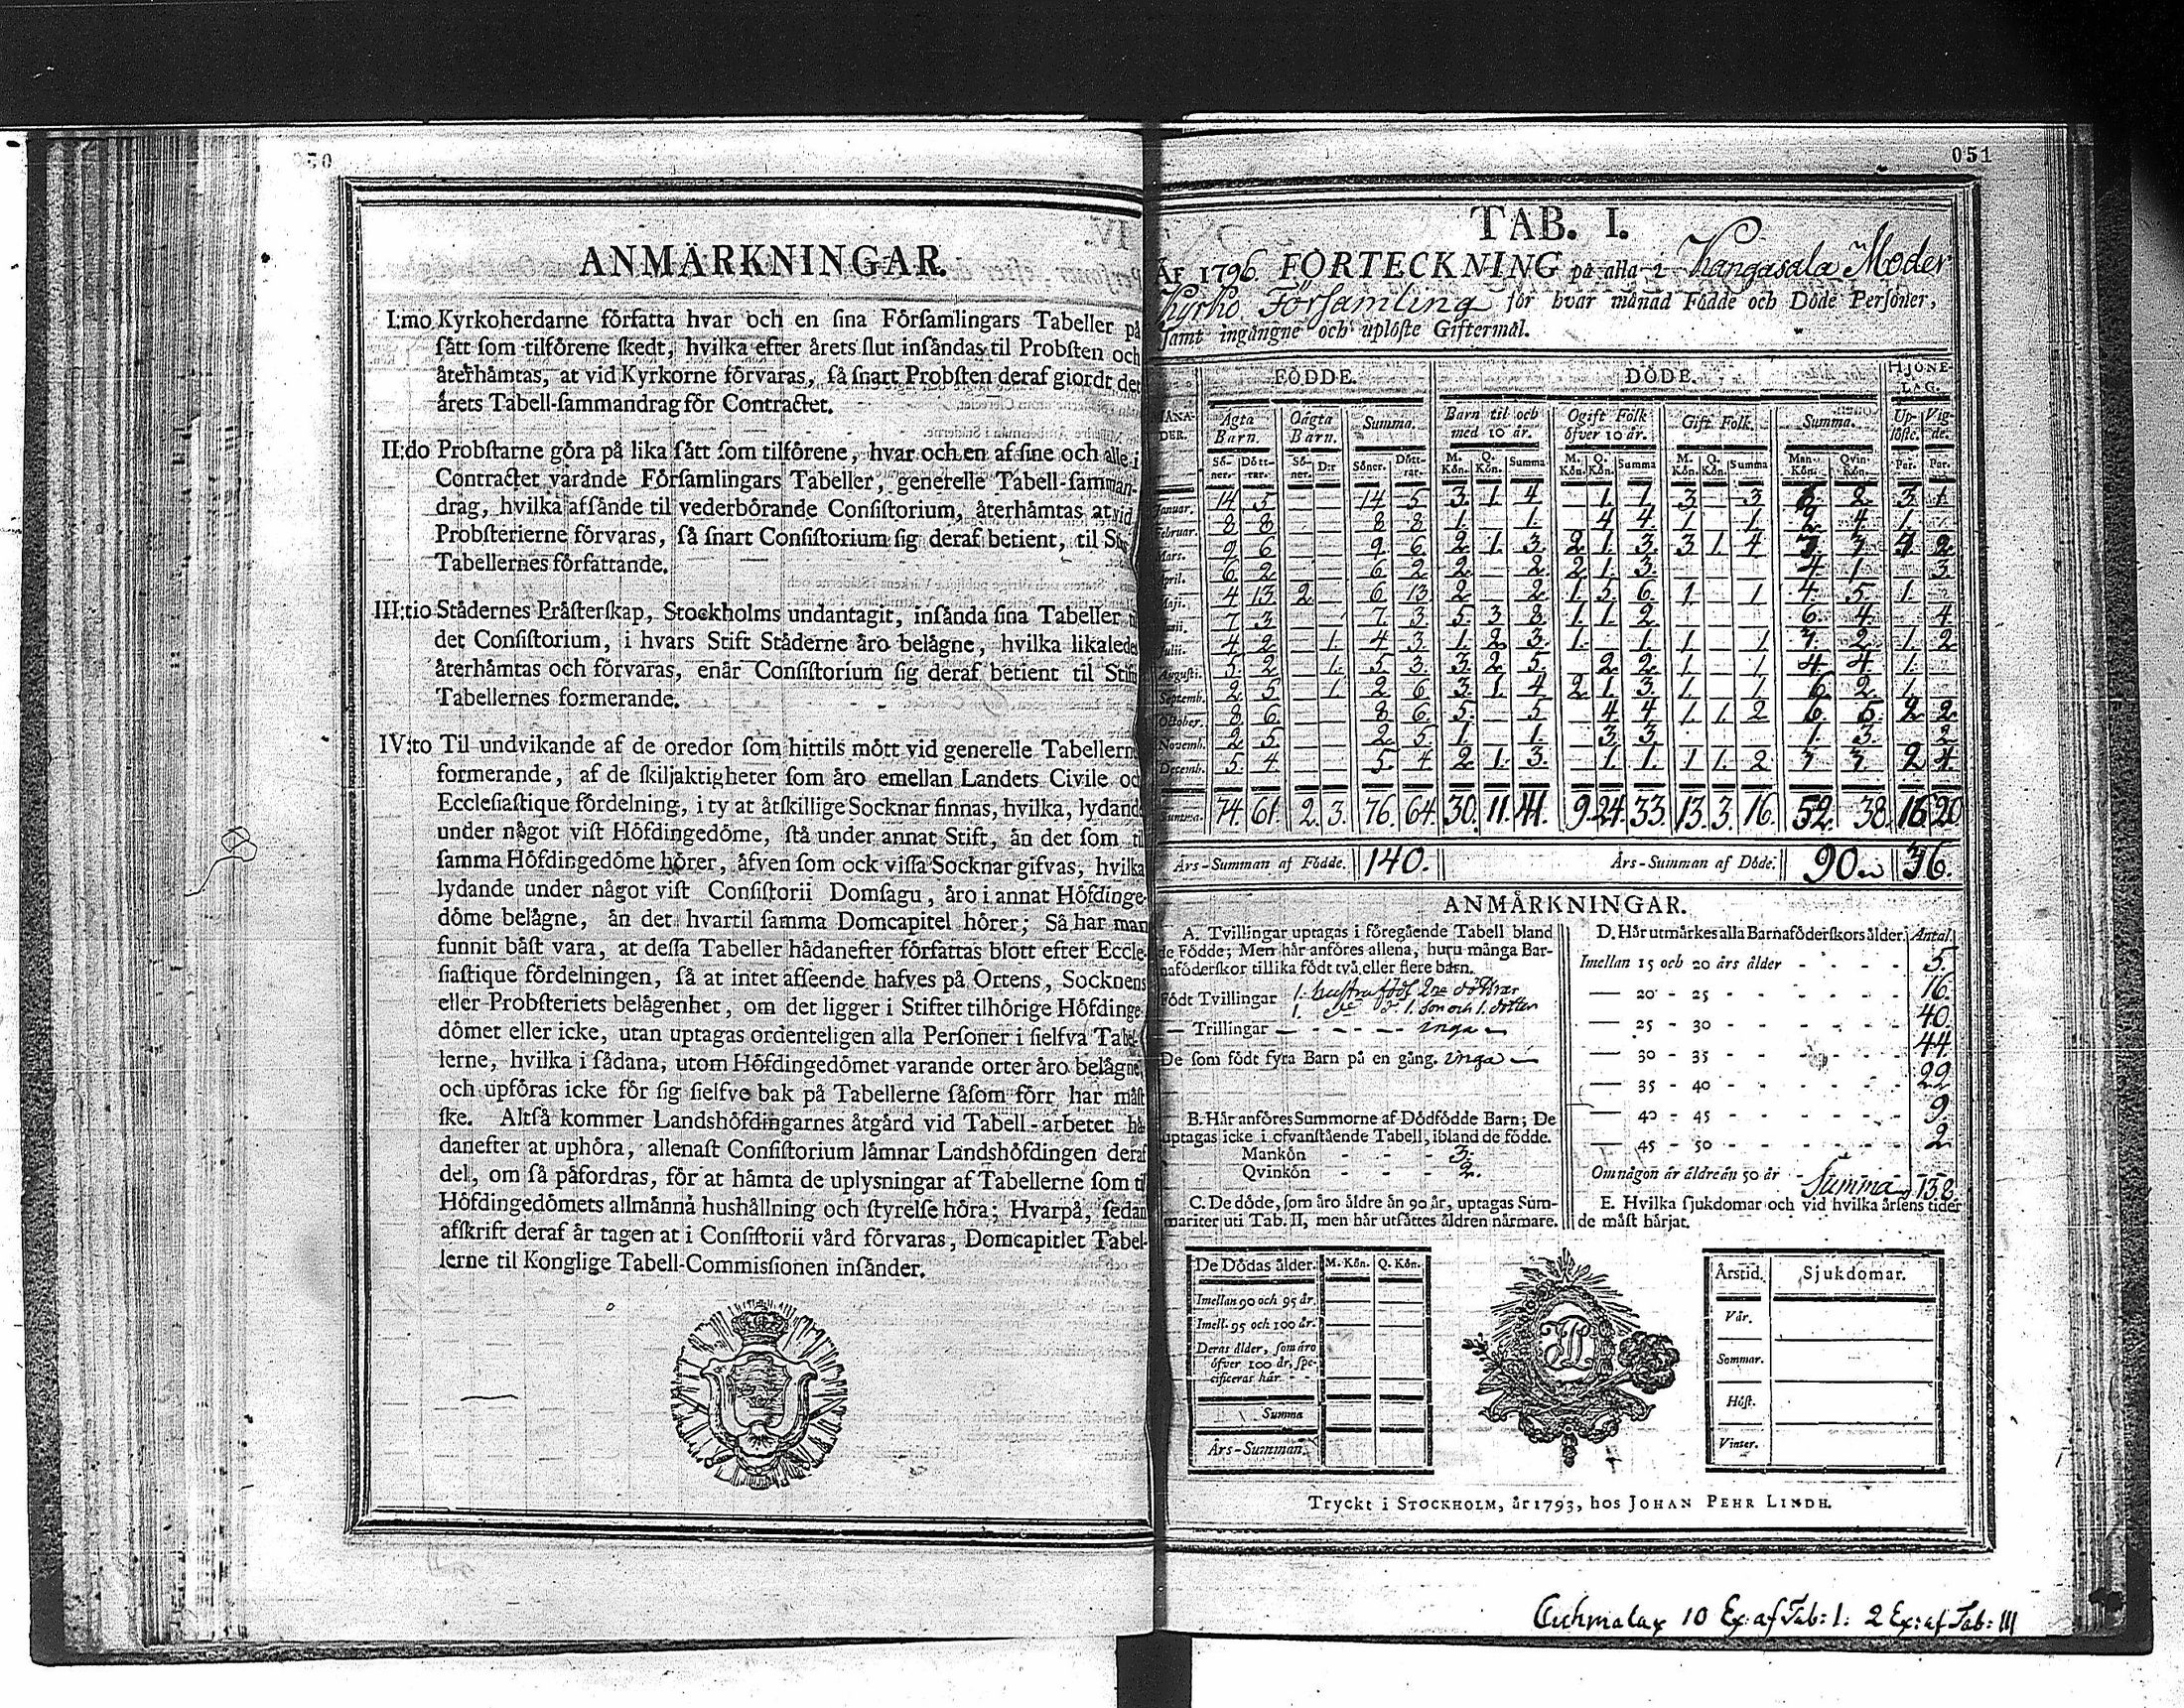 051
ANMÄRKNINGAR.
I:mo Kyrkoherdarne författa hvar och en sina Församlingars Tabeller på
sätt som tilförene skedt, hvilka efter årets slut insändas til Probsten och
återhämtas, at vid Kyrkorne förvaras, så snart Probsten deraf giordt det
årets Tabell-sammandrag för Contractet.
II:do Probstarne göra på lika sätt som tilförene, hvar och en af sine och alle i
Contractet varande Församlingars Tabeller, generelle Tabell-samman-
drag, hvilka afsände til vederbörande Consistorium, återhämtas at vid
Probsterierne förvaras, så snart Consistorium sig deraf betient, til
Tabellernes författande.
III:tio Städernes Prästerskap, Stockholms undantagit, insända sina Tabeller
det Consistorium, i hvars Stift Städerne äro belägne, hvilka likaledes
återhämtas och förvaras, enär Consistorium sig deraf betient til Stifts
Tabellernes formerande.
IV:to Til undvikande af de oredor som hittils mött vid generelle Tabellerne
formerande, af de skiljaktigheter som äro emellan Landets Civile och
Ecclesiastique fördelning, i ty at åtskillige Socknar finnas, hvilka, lydande
under något vist Höfdingedöme, stå under annat Stift, än det som til
samma Höfdingedöme hörer, äfven som ock vissa Socknar gifvas, hvilka
lydande under något vist Consistorii Domsagu, äro i annat Höfdinge-
döme belägne, än det hvartil samma Domcapitel hörer; Så har man
funnit bäst vara, at dessa Tabeller hädanefter författas blott efter Eccle-
siastique fördelningen, så at intet afseende hafves på Ortens, Socknens
eller Probsteriets belägenhet, om det ligger i Stiftet tilhörige Höfdinge-
dömet eller icke, utan uptagas ordenteligen alla Personer i sielfva Tabel-
lerne, hvilka i sådana, utom Höfdingedömet varande orter äro belägne,
och upföras icke för sig sielfve bak på Tabellerne såsom förr har måst
ske. Altså kommer Landshöfdingarnes åtgärd vid Tabell-arbetet hä-
danefter at uphöra, allenast Consistorium lämnar Landshöfdingen deraf
del, om så påfordras, för at hämta de uplysningar af Tabellerne som til
Höfdingedömets allmänna hushållning och styrelse höra; Hvarpå, sedan
afskrift deraf är tagen at i Consistorii vård förvaras, Domcapitlet Tabel-
lerne til Konglige Tabell-Commissionen insänder.
TAB. I.
ÅF 1796 FÖRTECKNING på alla i Kangasala Moder
Kyrko Församling för hvar månad Födde och Döde Personer,
samt ingångne och uplöste Giftermål.
FÖDDE. DÖDE. HJONE-LAG.
MÅNA-DER. Ägta Barn. Oägta Barn. Summa. Barn til och med 10 år. Ogift Folk öfver 10 år. Gift Folk. Summa. Up-löste. Vig-de.
Sö-ner. Dött-rar. Sö-ner. D:r Söner. Dött-rar. M. Kön. Q. Kön. Summa M. Kön. Q. Kön. Summa M. Kön. Q. Kön. Summa Man-Kön. Qvin-Kön. Par. Par.
Januar. 14 5 14 5 3 1 4 1 1 3 3 6 2 3 1
Februar. 8 8 8 8 1 1 4 4 1 1 2 4 1
Mars. 9 6 9 6 2 1 3 2 1 3 3 1 4 7 3 4 2
April. 6 2 6 2 2 2 2 1 3 4 1 3
Maji. 4 13 2 6 13 2 2 1 5 6 1 1 4 5 1
Junii. 7 3 7 3 5 3 8 1 1 2 6 4 4
Julii. 4 2 1 4 3 1 2 3 1 1 1 1 3 2 1 2
Augusti. 5 2 1 5 3 3 2 5 2 2 1 1 4 4 1
Septemb. 2 5 1 2 6 3 1 4 2 1 3 1 1 6 2 1
October. 8 6 8 6 5 5 4 4 1 1 2 6 5 2 2
Novemb. 2 5 2 5 1 1 3 3 1 3 2
Decemb. 5 4 5 4 2 1 3 1 1 1 1 2 3 3 2 4
Summa. 74 61 2 3 76 64 30 11 41 9 24 33 13 3 16 52 38 16 20
Års-Summan af Födde. 140. Års-Summan af Döde. 90 36.
ANMÄRKNINGAR.
A. Tvillingar uptagas i föregående Tabell bland
de Födde; Men här anföres allena, huru många Bar-
naföderskor tillika födt två eller flere barn.
Födt Tvillingar 1. hustru födt 2ne döttrar
1. 1. son och 1. dotter
— Trillingar inga
De som födt fyra Barn på en gång. inga
B. Här anföres Summorne af Dödfödde Barn; De
uptagas icke i ofvanstående Tabell, ibland de födde.
Mankön - - - 3.
Qvinkön - - - 2.
C. De döde, som äro äldre än 90 år, uptagas Sum-
mariter uti Tab. II, men här utsättes åldren närmare.
De Dödas ålder. M. Kön. Q. Kön.
Imellan 90 och 95 år.
Imell. 95 och 100 år.
Deras ålder, som äro
öfver 100 år, spe-
cificeras här. - -
Summa
Års-Summan.
D. Här utmärkes alla Barnaföderskors ålder. Antal
Imellan 15 och 20 års ålder - - - 5.
— 20 - 25 - - - 16.
— 25 - 30 - - - 40.
— 30 - 35 - - - 44.
— 35 - 40 - - - 22
— 40 - 45 - - - 9.
— 45 - 50 - - - 2
Om någon är äldre än 50 år - Summa 138
E. Hvilka sjukdomar och vid hvilka årsens tider
de mäst härjat.
Årstid. Sjukdomar.
Vår.
Sommar.
Höst.
Vinter.
Tryckt i STOCKHOLM, år 1793, hos JOHAN PEHR LINDH.
10 Ex: af Tab: I: 2 Ex: af Tab: III